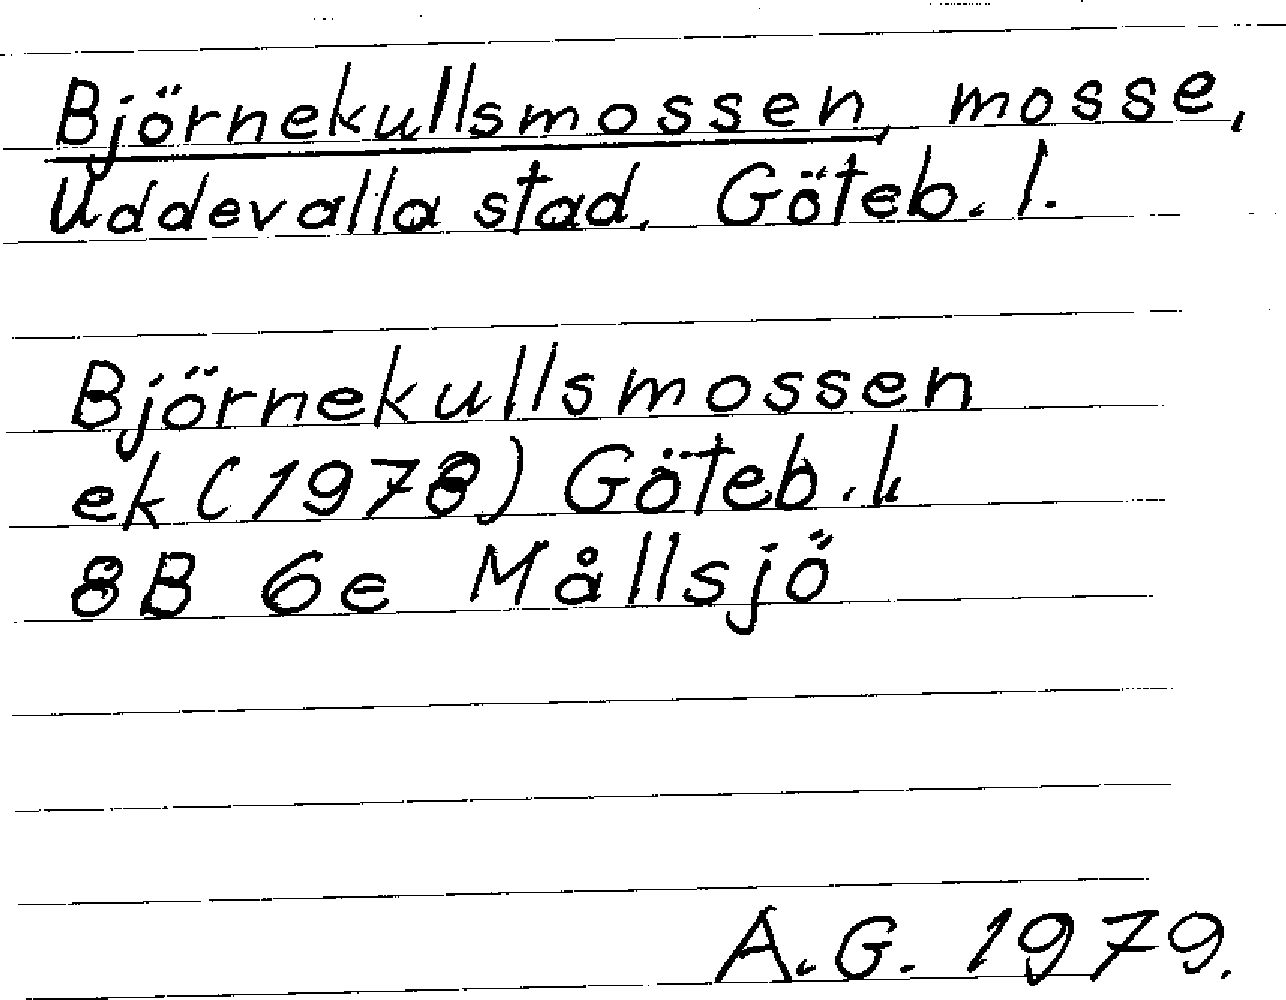 Björnekullsmossen, mosse,
Uddevalla stad, Göteb. l.
Björnekullsmossen
ek (1978) Göteb. l.
8B 6e Mållsjö
A.G. 1979.